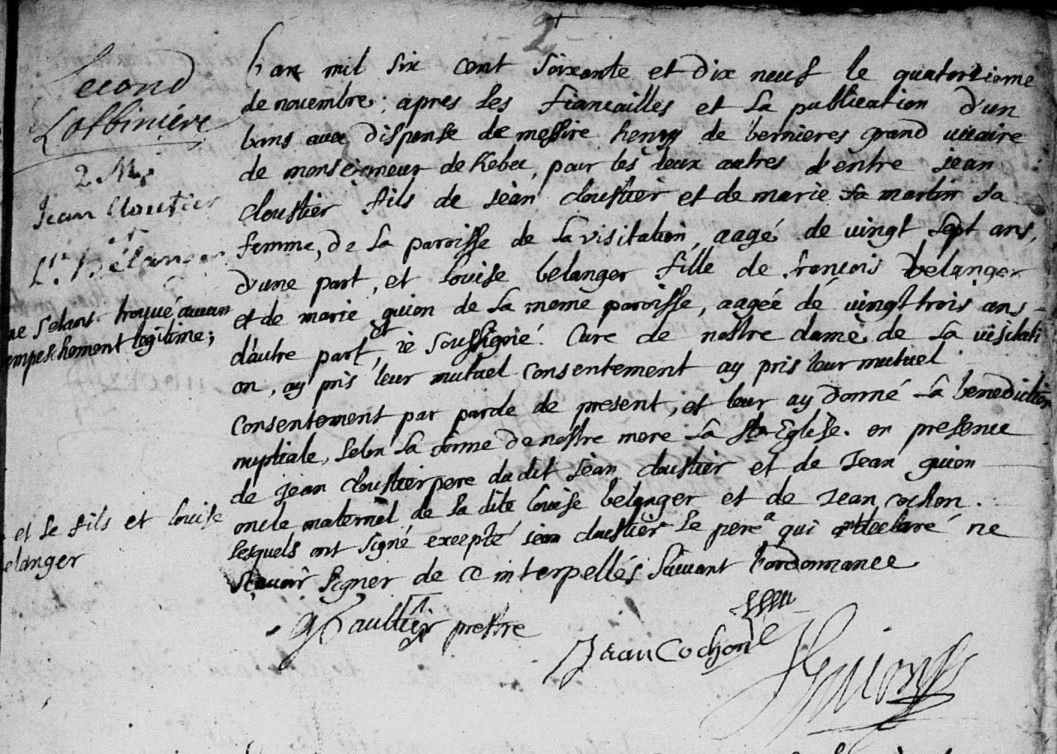 2
Second
Lotbiniere
2 M.
Jean Cloutier
et
Bélanger
ne s'etant trouvé aucun
empeschement legitime;
et le fils et louise
elanger
L'an mil six cent soixante et dix neuf le quatorzieme
de novembre; apres les fiancailles et la publication d'un
bans avec dispense de messire henry de bernieres grand vicaire
de monseigneur de Kebec, pour les deux autres d'entre jean
cloustier fils de jean cloustier et de marie sa martin sa
femme, de la paroisse de la visitation, aagé de vingt sept ans,
d'une part, et louise belanger fille de françois belanger
et de marie guion de la meme paroisse, aagée de vingt trois ans
d'autre part, et ie soussigné Curé de nostre dame de la visitati
on, ay pris leur mutuel consentement ay pris leur mutuel
consentement par parole de present, et leur ay donné la benediction
nuptiale, selon la forme de nostre mere la Ste Eglise. en presence
de Jean cloustier pere du dit jean cloustier et de Jean guion
oncle maternel de la dite louise belanger et de Jean cochon.
lesquels ont signé excepté jean cloustier le pere qui a declaré ne
sçavoir signer de ce interpellés suivant l'ordonnance
Gaultier prestre
Jean Cochon
Guion